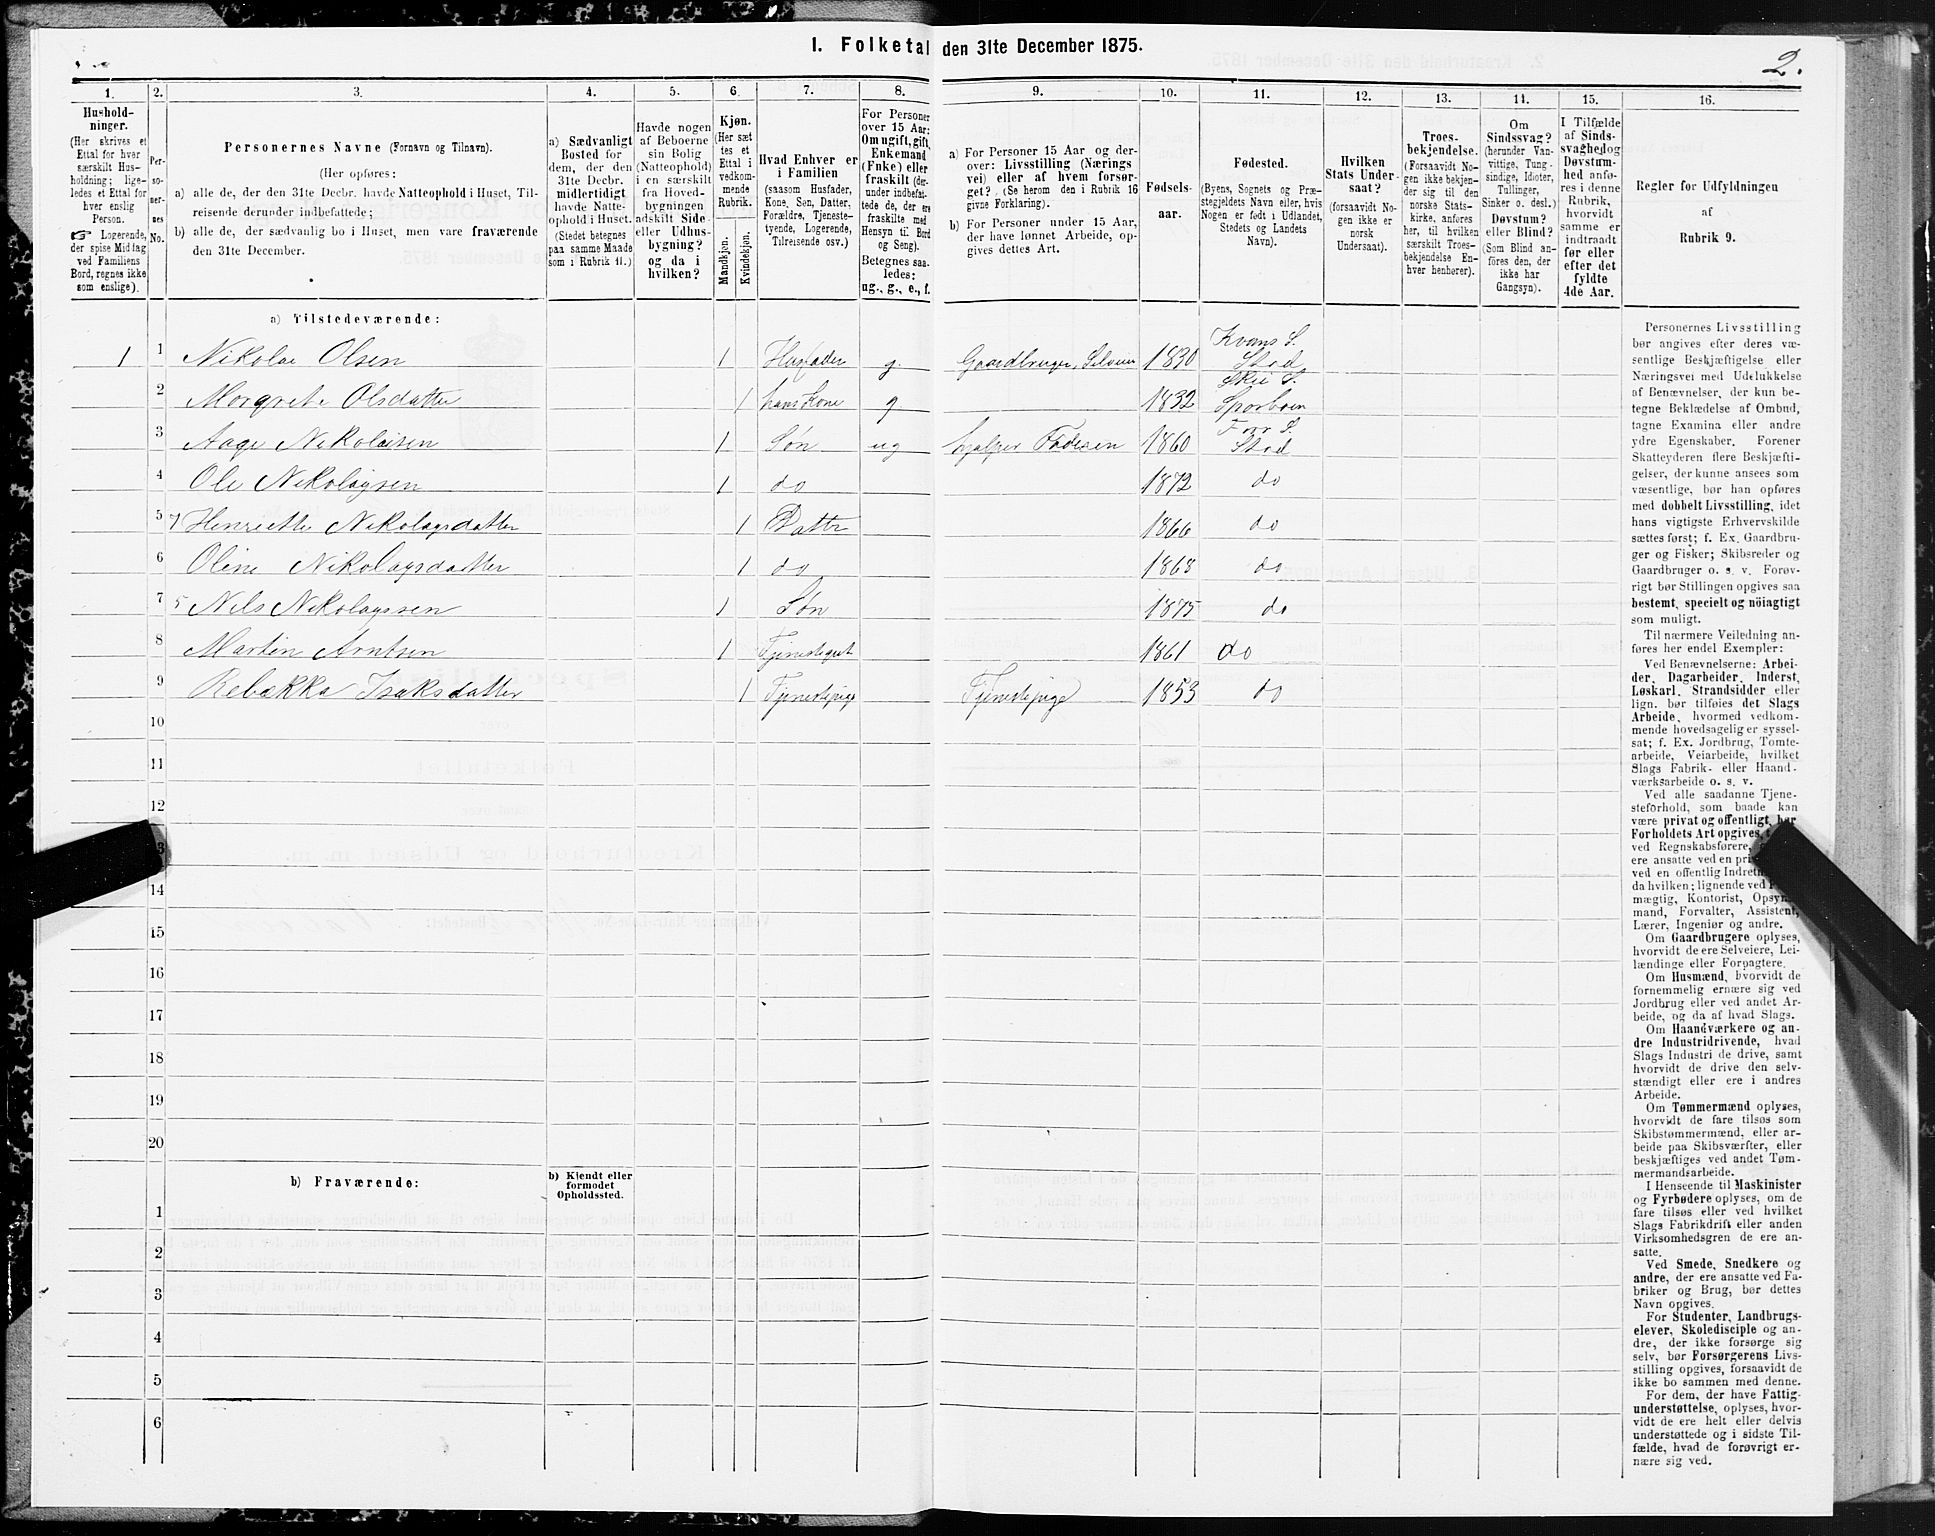 1. Folketal den 31te December 1875.
2.
1. 2. 3. 4. 5. 6. 7. 8. 9. 10. 11. 12. 13. 14. 15. 16.
Hushold-
ninger.
(Her skrives et
Ettal for hver
særskilt Hus-
holdning; lige-
ledes et Ettal for
hver enslig
Person.
☞ Logerende,
der spise Middag
ved Familiens
Bord, regnes ikke
som enslige).
Per-
so-
ner-
nes
No.
Personernes Navne (Fornavn og Tilnavn).
(Her opføres:
a) alle de, der den 31te Decbr. havde Natteophold i Huset, Til-
reisende derunder indbefattede;
b) alle de, der sædvanlig bo i Huset, men vare fraværende
den 31te December.
a) Sædvanligt
Bosted for
dem, der den
31te Decbr.
midlertidigt
havde Natte-
ophold i Huset.
(Stedet betegnes
paa samme Maade
som i Rubrik 11.)
Havde nogen
af Beboerne
sin Bolig
(Natteophold)
i en særskilt
fra Hoved-
bygningen
adskilt Side-
eller Udhus-
bygning?
og da i
hvilken?
Kjøn.
(Her sæt
tes et
Ettal i
vedkom-
mende
Rubrik.
Mandkjøn.
Kvindekjøn.
Hvad Enhver er
i Familien
(saasom Husfader,
Kone, Søn, Datter,
Forældre, Tjeneste-
tyende, Logerende,
Tilreisende osv.)
For Personer
over 15 Aar:
Om ugift, gift,
Enkemand
(Enke) eller
fraskilt (der-
under indbefat-
tede de, der ere
fraskilte med
Hensyn til Bord
og Seng).
Betegnes saa-
ledes:
ug., g., e., f.
a) For Personer 15 Aar og der-
over: Livsstilling (Nærings
vei) eller af hvem forsør-
get? (Se herom den i Rubrik 16
givne Forklaring).
b) For Personer under 15 Aar,
der have lønnet Arbeide, op-
gives dettes Art.
Fødsels-
aar.
Fødested.
(Byens, Sognets og Præ-
stegjeldets Navn eller, hvis
Nogen er født i Udlandet,
Stedets og Landets
Navn).
Hvilken
Stats Under-
saat?
(forsaavidt No-
gen ikke er
norsk
Undersaat).
Troes-
bekjendelse.
(Forsaavidt No-
gen ikke bekjen-
der sig til den
norske Stats-
kirke, anføres
her, til hvilken
særskilt Troes-
bekjendelse En-
hver henhører).
Om
Sindssvag?
(herunder Van-
vittige, Tung-
sindige, Idioter,
Tullinger,
Sinker o. desl.)
Døvstum?
eller Blind?
(Som Blind an-
føres den, der
ikke har
Gangsyn).
I Tilfælde
af Sinds-
svaghed og
Døvstum-
hed anfø-
res i denne
Rubrik,
hvorvidt
samme er
indtraadt
før eller
efter det
fyldte
4de Aar.
Regler for Udfyldningen
af
Rubrik 9.
a) Tilstedeværende:
1 1 Nikolai Olsen 1 Husfader g. Gaardbruger, Selveier 1830 Kvams S. Stod
2 Margrete Olsdatter 1 hans Kone g. 1832 Skei S. Sparboen
3 Aage Nikolaisen 1 Søn ug hjelper Faderen 1860 For S. Stod
4 Ole Nikolaysen 1 do 1872 do
5 7 Henriette Nikolaysdatter 1 Datter 1866 do
6 Oline Nikolaysdatter 1 do 1863 do
7 5 Nils Nikolayssen 1 Søn 1875 do
8 Martin Arntsen 1 Tjenestegut 1861 do
9 Rebækka Isaksdatter 1 Tjenestepige Tjenestepige 1853 do
10
11
12
14
15
16
17
18
19
20
b) Fraværende:
b) Kjendt eller
formodet
Opholdssted.
1
2
3
4
5
6
Personernes Livsstilling
bør angives efter deres væ-
sentlige Beskjæftigelse eller
Næringsvei med Udelukkelse
af Benævnelser, der kun be-
tegne Beklædelse af Ombud,
tagne Examina eller andre
ydre Egenskaber. Forener
Skatteyderen flere Beskjæfti-
gelser, der kunne ansees som
væsentlige, bør han opføres
med dobbelt Livsstilling, idet
hans vigtigste Erhvervskilde
sættes først; f. Ex. Gaardbru-
ger og Fisker; Skibsreder og
Gaardbruger o. s. v. Forøv-
rigt bør Stillingen opgives saa
bestemt, specielt og nöiagtigt
som muligt.
Til nærmere Veiledning an-
føres her endel Exempler:
Ved Benævnelserne: Arbei-
der, Dagarbeider, Inderst,
Løskarl, Strandsidder eller
lign. bør tilføies det Slags
Arbeide, hvormed vedkom-
mende hovedsagelig er syssel-
sat; f. Ex. Jordbrug, Tomte-
arbeide, Veiarbeide, hvilket
Slags Fabrik- eller Haand-
værksarbeide o. s. v.
Ved alle saadanne Tjene-
steforhold, som baade kan
være privat og offentligt, bør
Forholdets Art opgives,
ved Regnskabsførere,
ere ansatte ved en
ved en offentlig
da hvilken; lignende ved
mægtig, Kontorist,
mand, Forvalter, Assistent,
Lærer, Ingeniør og andre.
Om Gaardbrugere oplyses,
hvorvidt de ere Selveiere, Lei-
lændinge eller Forpagtere.
Om Husmænd, hvorvidt de
fornemmelig ernære sig ved
Jordbrug eller ved andet Ar-
beide, og da af hvad Slags.
Om Haandværkere og an-
dre Industridrivende, hvad
Slags Industri de drive, samt
hvorvidt de drive den selv-
stændigt eller ere i andres
Arbeide.
Om Tømmermænd oplyses,
hvorvidt de fare tilsøs som
Skibstømmermænd, eller ar-
beide paa Skibsværfter, eller
beskjæftiges ved andet Tøm-
mermandsarbeide.
I Henseende til Maskinister
og Fyrbødere oplyses, om de
fare tilsøs eller ved hvilket
Slags Fabrikdrift eller anden
Virksomhedsgren de ere an-
satte.
Ved Smede, Snedkere og
andre, der ere ansatte ved Fa-
briker og Brug, bør dettes
Navn opgives.
For Studenter, Landbrugs-
elever, Skoledisciple og an-
dre, der ikke forsørge sig
selv, bør Forsørgerens Livs-
stilling opgives, forsaavidt de
ikke bo sammen med denne.
For dem, der have Fattig-
understøttelse, oplyses, hvor-
vidt de ere helt eller delvis
understøttede og i sidste Til-
fælde, hvad de forøvrigt er-
nære sig ved.